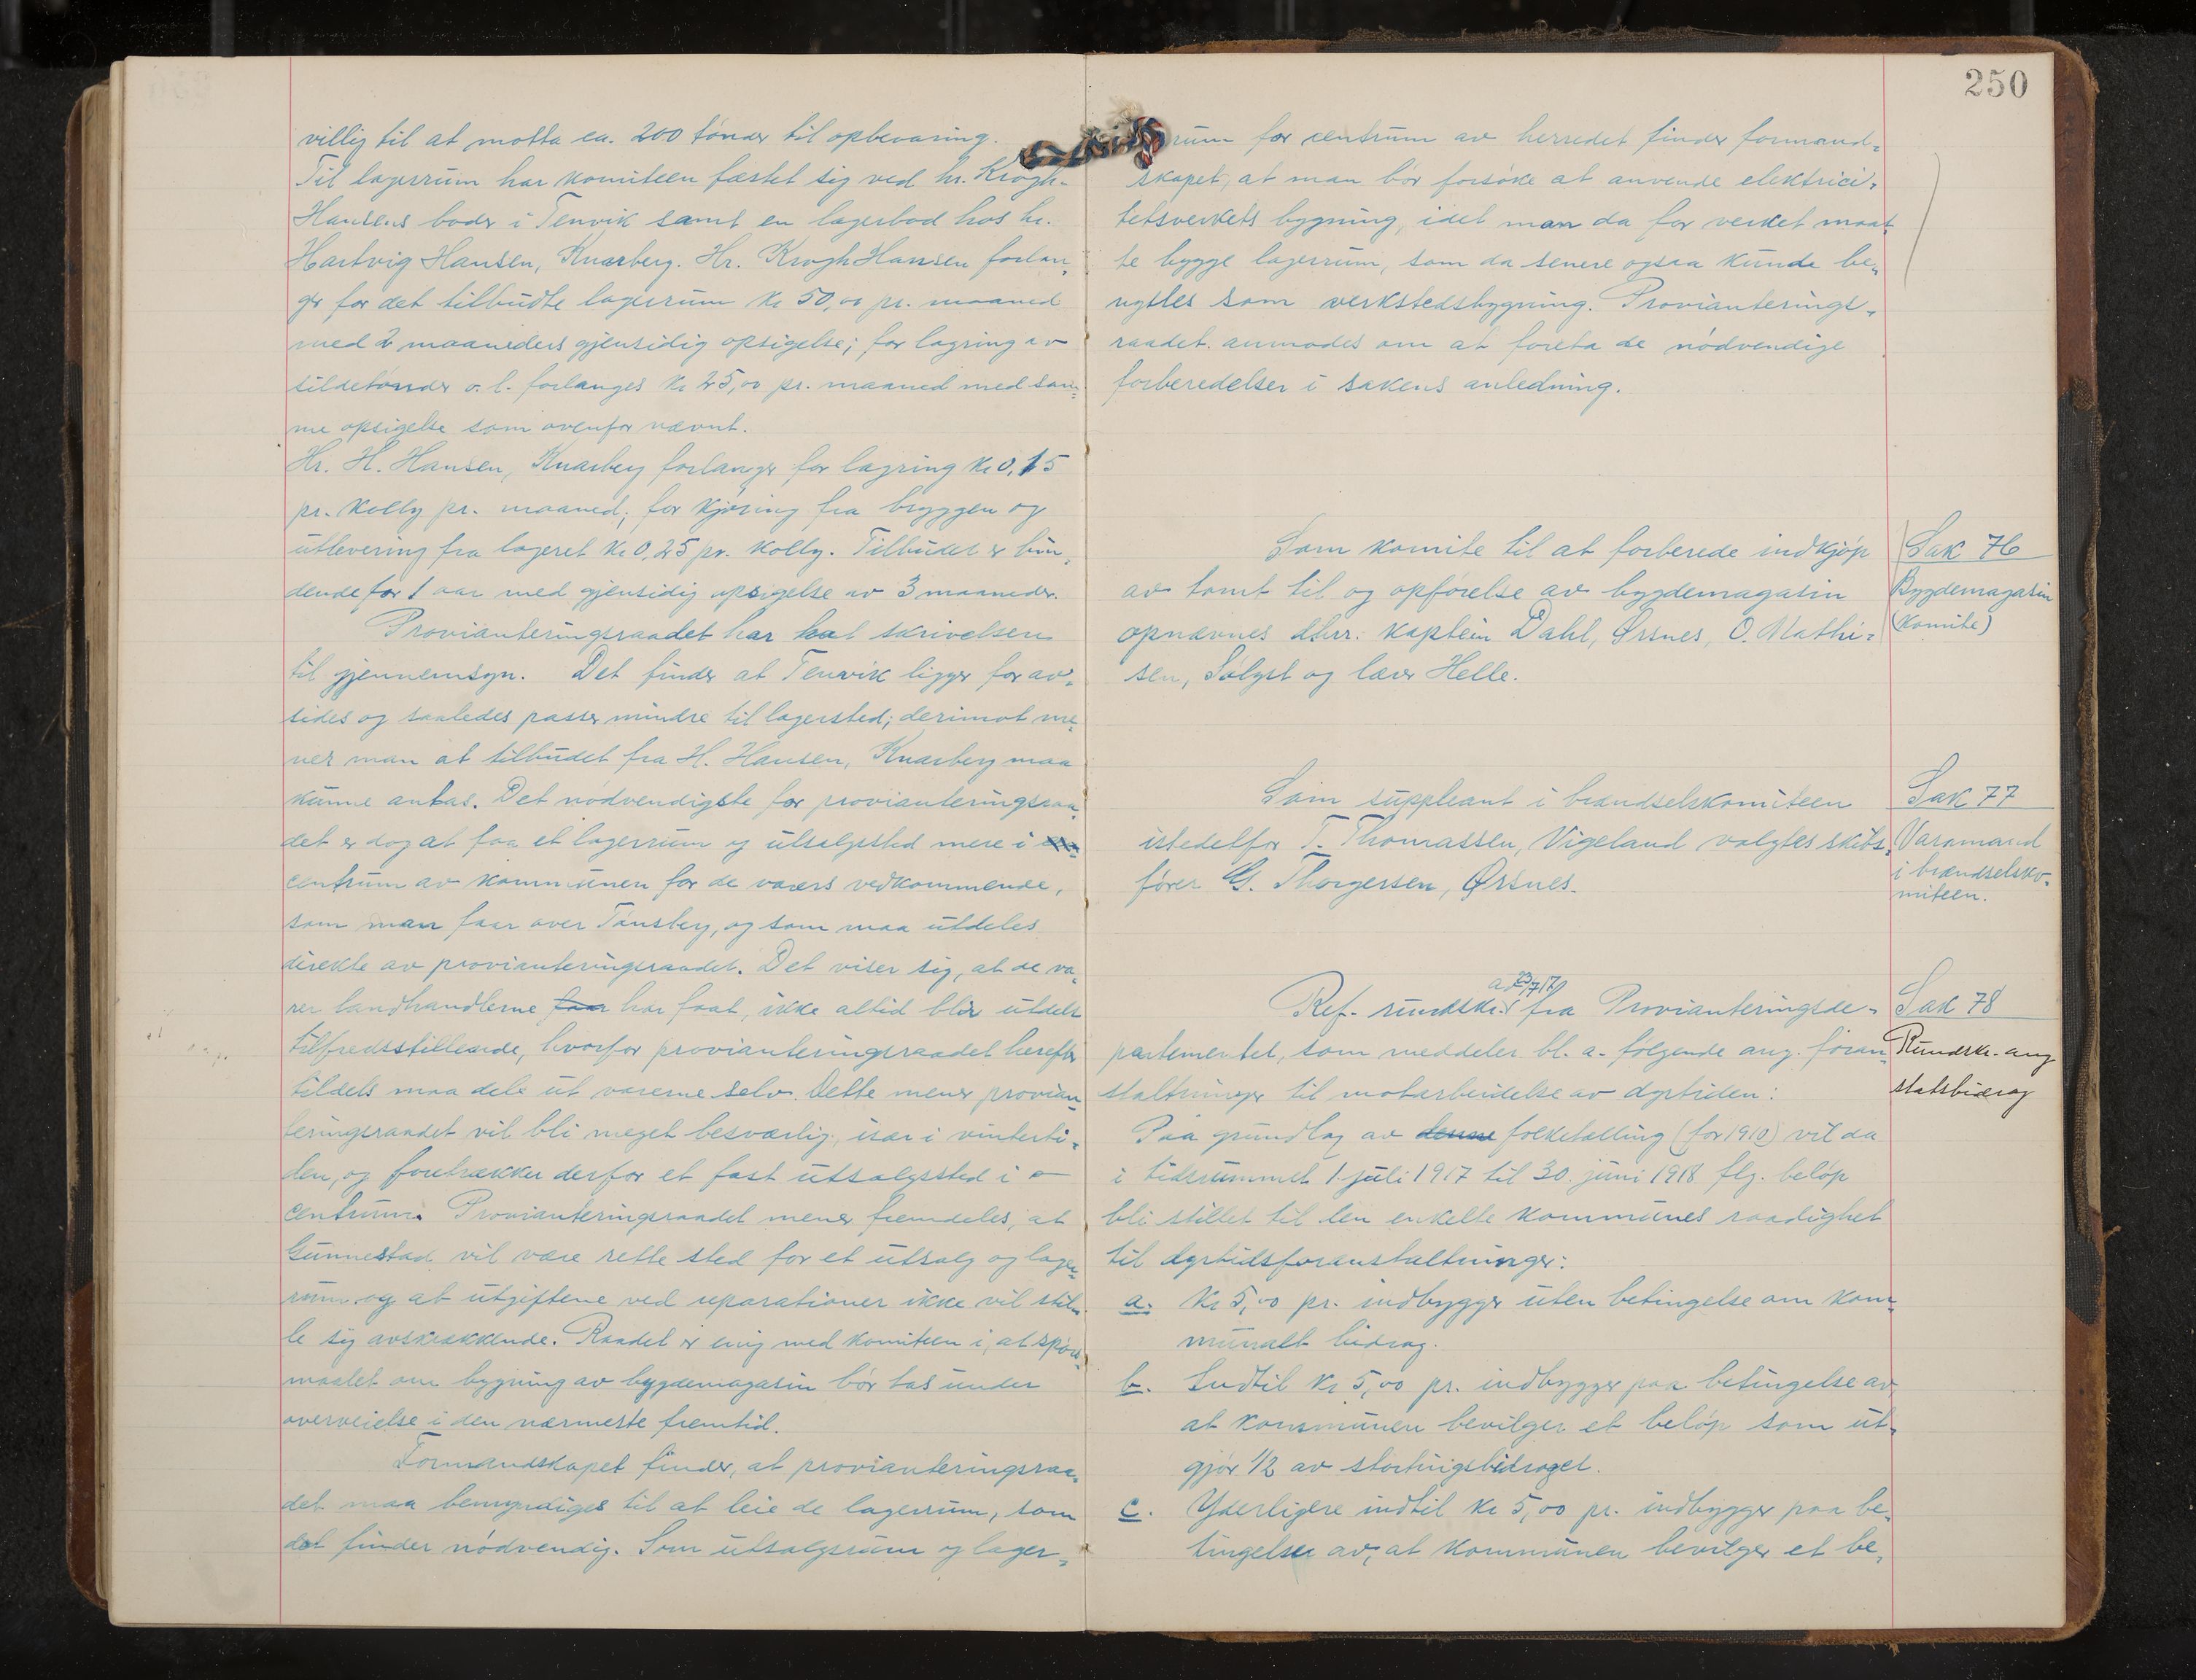 villig til at motta ca. 200 tönder til opbevaring.
Til lagerrum har komiteen fæstet sig ved hr. Krogh-
Hansens boder i Tenvik samt en lagerbod hos hr.
Hartvig Hansen, Knarberg. Hr. Krogh Hansen forlan-
ger for det tilbudte lagerrum kr 50,00 pr. maaned
med 2 maaneders gjensidig opsigelse; for lagring av
sildetönder o. l. forlanges kr 25,00 pr. maaned med sam-
me opsigelse som ovenfor nævnt.
Hr. H. Hansen, Knarberg forlanger for lagring kr 0,15
pr. kolly pr. maaned; for kjöring fra bryggen og
utlevering fra lageret kr 0,25 pr. kolly. Tilbudet er bin-
dende for 1 aar med gjensidig opsigelse av 3 maaneder.
Provianteringsraadet har hat skrivelsen
til gjennemsyn. Det finder at Tenvik ligger for av-
sides og saaledes passer mindre til lagersted; derimot me-
ner man at tilbudet fra H. Hansen, Knarberg maa
kunne antas. Det nödvendigste for provianteringsraa-
det er dog at faa et lagerrum og utsalgssted mere i
centrum av kommunen for de varers vedkommende,
som man faar over Tönsberg, og som maa utdeles
direkte av provianteringsraadet. Det viser sig, at de va-
rer landhandlerne faar har faat, ikke altid blir utdelt
tilfredsstillende, hvorfor provianteringsraadet herefter
tildels maa dele ut varerne selv. Dette mener provian-
teringsraadet vil bli meget besværlig, især i vinterti-
den, og foretrækker derfor et fast utsalgssted i
centrum. Provianteringsraadet mener fremdeles, at
Gunnestad vil være rette sted for et utsalg og lager-
rum og at utgiftene ved reparationer ikke vil stil-
le sig avskrækkende. Raadet er enig med komiteen i, at spörs-
maalet om bygning av bygdemagasin bör tas under
overveielse i den nærmeste fremtid.
Formandskapet finder, at provianteringsraa-
det maa bemyndiges til at leie de lagerrum, som
det finder nödvendig. Som utsalgsrum og lager-
250
rum for centrum av herredet finder formand-
skapet, at man bör forsöke at anvende elektrici-
tetsverkets bygning, idet man da for verket maat-
te bygge lagerrum, som da senere ogsaa kunde be-
nyttes som verkstedsbygning. Provianterings-
raadet anmodes om at foreta de nödvendige
forberedelser i sakens anledning.
Som komite til at forberede indkjöp
av tomt til og opförelse av bygdemagasin
opnævnes dhrr. kaptein Dahl, Ørsnes, O. Mathi-
sen, Sölyst og lærer Helle.
Sak 76
Bygdemagasin
(Komite)
Som suppleant i brændselskomiteen
istedetfor T. Thomassen, Vigeland valgtes skibs-
förer G. Thorgersen, Ørsnes.
Sak 77
Varamand
i brændselsko-
miteen.
av 23/7 17
Ref. rundskr. fra Provianteringsde-
partementet, som meddeler bl. a. følgende ang. foran-
staltninger til motarbeidelse av dyrtiden:
Paa grundlag av denne folketælling (for 1910) vil da
i tidsrummet 1. juli 1917 til 30. juni 1918 flg. belöp
bli stillet til den enkelte kommunes raadighet
til dyrtidsforanstaltninger:
a. Kr 5,00 pr. indbygger uten betingelse om kom-
munalt bidrag.
b. Indtil kr 5,00 pr. indbygger paa betingelse av
at kommunen bevilger et belöp som ut-
gjör 1/2 av stortingsbidraget.
c. Yderligere indtil kr 5,00 pr. indbygger paa be-
tingelse av, at kommunen bevilger et be-
Sak 78
Rundskr. ang
statsbidrag